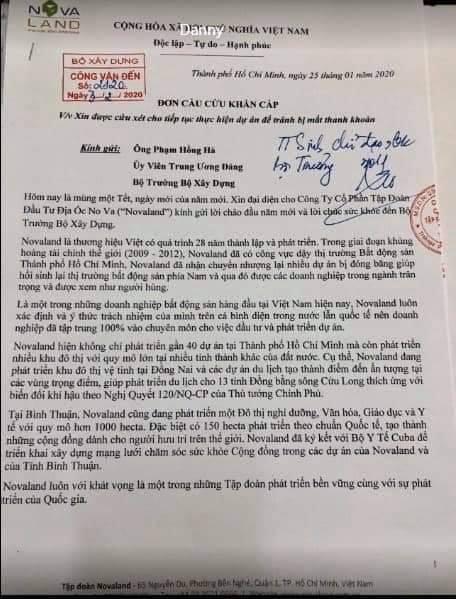 NOVA
LAND
CỘNG HÒA XÃ HỘI CHỦ NGHĨA VIỆT NAM
Danny
Độc lập - Tự do - Hạnh phúc
BỘ XÂY DỰNG
CÔNG VĂN ĐẾN
Số:
Ngày 3/2/2020
Thành phố Hồ Chí Minh, ngày 25 tháng 01 năm 2020
ĐƠN CẦU CỨU KHẨN CẤP
V/v Xin được cứu xét cho tiếp tục thực hiện dự án để tránh bị mất thanh khoản
Kính gửi: Ông Phạm Hồng Hà
Ủy Viên Trung Ương Đảng
Bộ Trưởng Bộ Xây Dựng
Hôm nay là mùng một Tết, ngày mới của năm mới. Xin đại diện cho Công Ty Cổ Phần Tập Đoàn
Đầu Tư Địa Ốc No Va (“Novaland”) kính gửi lời chào đầu năm mới và lời chúc sức khỏe đến Bộ
Trưởng Bộ Xây Dựng.
Novaland là thương hiệu Việt có quá trình 28 năm thành lập và phát triển. Trong giai đoạn khủng
hoảng tài chính thế giới (2009 - 2012), Novaland đã có công vực dậy thị trường Bất động sản
Thành phố Hồ Chí Minh, Novaland đã nhận chuyển nhượng lại nhiều dự án bị đóng băng giúp
hồi sinh lại thị trường bất động sản phía Nam và qua đó được các doanh nghiệp trong ngành trân
trọng và được xem như người hùng.
Là một trong những doanh nghiệp bất động sản hàng đầu tại Việt Nam hiện nay, Novaland luôn
xác định và ý thức trách nhiệm của mình trên cả bình diện trong nước lẫn quốc tế nên doanh
nghiệp đã tập trung 100% vào chuyên môn cho việc đầu tư và phát triển dự án.
Novaland hiện không chỉ phát triển gần 40 dự án tại Thành phố Hồ Chí Minh mà còn phát triển
nhiều khu đô thị với quy mô lớn tại nhiều tỉnh thành khác của đất nước. Cụ thể, Novaland đang
phát triển khu đô thị vệ tinh tại Đồng Nai và các dự án du lịch tạo thành điểm đến ấn tượng tại
các vùng trọng điểm, giúp phát triển du lịch cho 13 tỉnh Đồng bằng sông Cửu Long thích ứng với
biến đổi khí hậu theo Nghị Quyết 120/NQ-CP của Thủ tướng Chính Phủ.
Tại Bình Thuận, Novaland cũng đang phát triển một Đô thị nghỉ dưỡng, Văn hóa, Giáo dục và Y
tế với quy mô hơn 1000 hecta. Đặc biệt có 150 hecta phát triển theo chuẩn Quốc tế, tạo thành
những cộng đồng dành cho người hưu trí trên thế giới. Novaland đã ký kết với Bộ Y Tế Cuba để
triển khai xây dựng mạng lưới chăm sóc sức khỏe Cộng đồng trong các dự án của Novaland và
của Tỉnh Bình Thuận.
Novaland luôn với khát vọng là một trong những Tập đoàn phát triển bền vững cùng với sự phát
triển của Quốc gia.
1
Tập đoàn Novaland - 65 Nguyễn Du, Phường Bến Nghé, Quận 1, TP. Hồ Chí Minh, Việt Nam